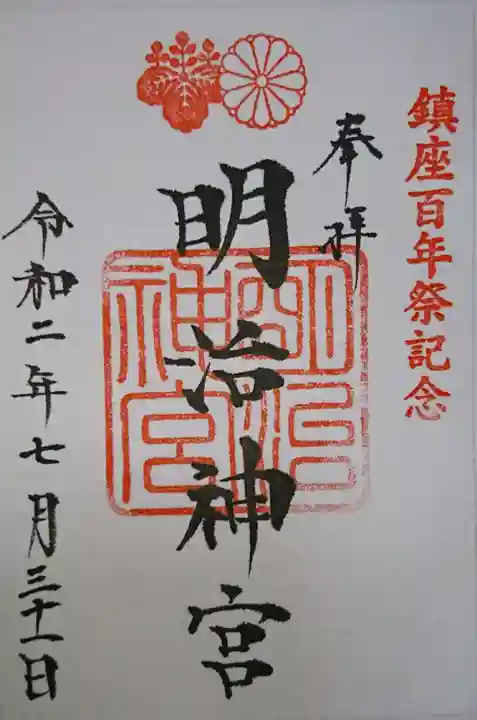 鎮座百年祭記念
奉拝
明治神宮
明治神宮
令和二年七月三十一日